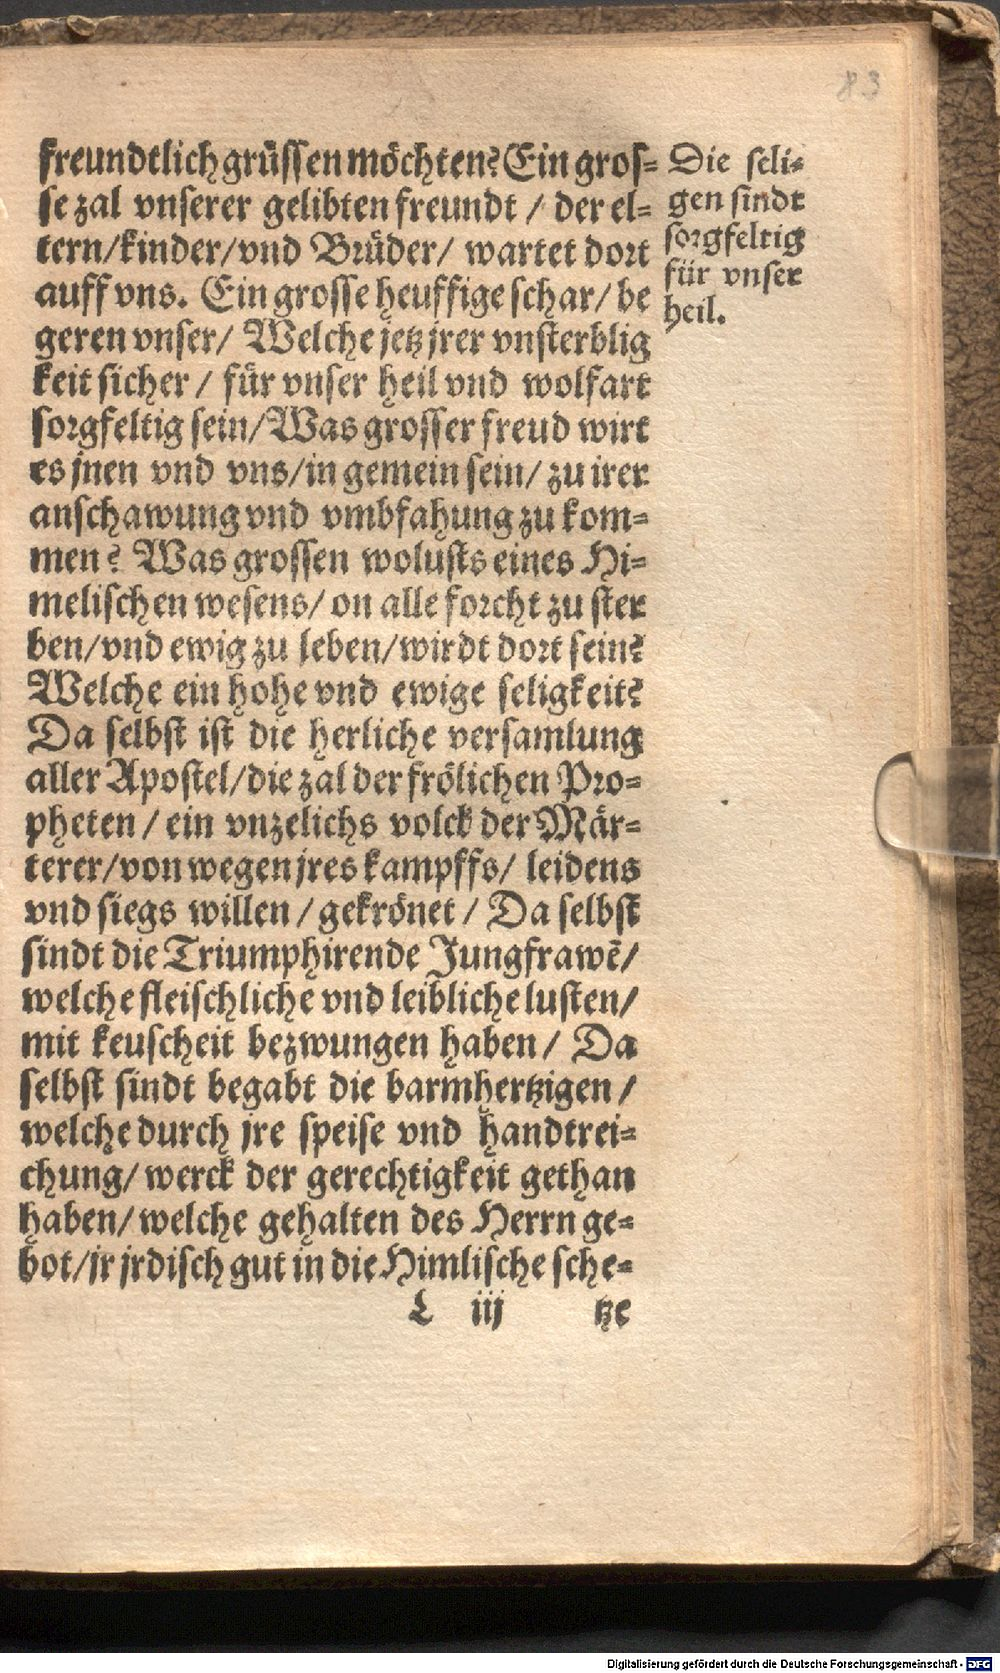 83
freundtlich grüssen möchten? Ein gros-
se zal vnserer gelibten freundt / der el-
tern/kinder/vnd Brüder/ wartet dort
auff vns. Ein grosse heuffige schar/ be
geren vnser/ Welche jetz jrer vnsterblig
keit sicher / für vnser heil vnd wolfart
sorgfeltig sein/Was grosser freud wirt
es jnen vnd vns/in gemein sein/ zu irer
anschawung vnd vmbfahung zu kom-
men? Was grossen wolusts eines Hi-
melischen wesens/ on alle forcht zu ster
ben/vnd ewig zu leben/wirdt dort sein?
Welche ein hohe vnd ewige seligkeit?
Da selbst ist die herliche versamlung
aller Apostel/die zal der frölichen Pro-
pheten / ein vnzelichs volck der Mär-
terer/von wegen jres kampffs/ leidens
vnd siegs willen / gekrönet / Da selbst
sindt die Triumphirende Jungfrawē/
welche fleischliche vnd leibliche lusten/
mit keuscheit bezwungen haben/ Da
selbst sindt begabt die barmhertzigen /
welche durch jre speise vnd handtrei-
chung/ werck der gerechtigkeit gethan
haben/ welche gehalten des Herrn ge-
bot/jr jrdisch gut in die Himlische sche-
L iij tze
Die seli-
gen sindt
sorgfeltig
für vnser
heil.
Digitalisierung gefördert durch die Deutsche Forschungsgemeinschaft - DFG